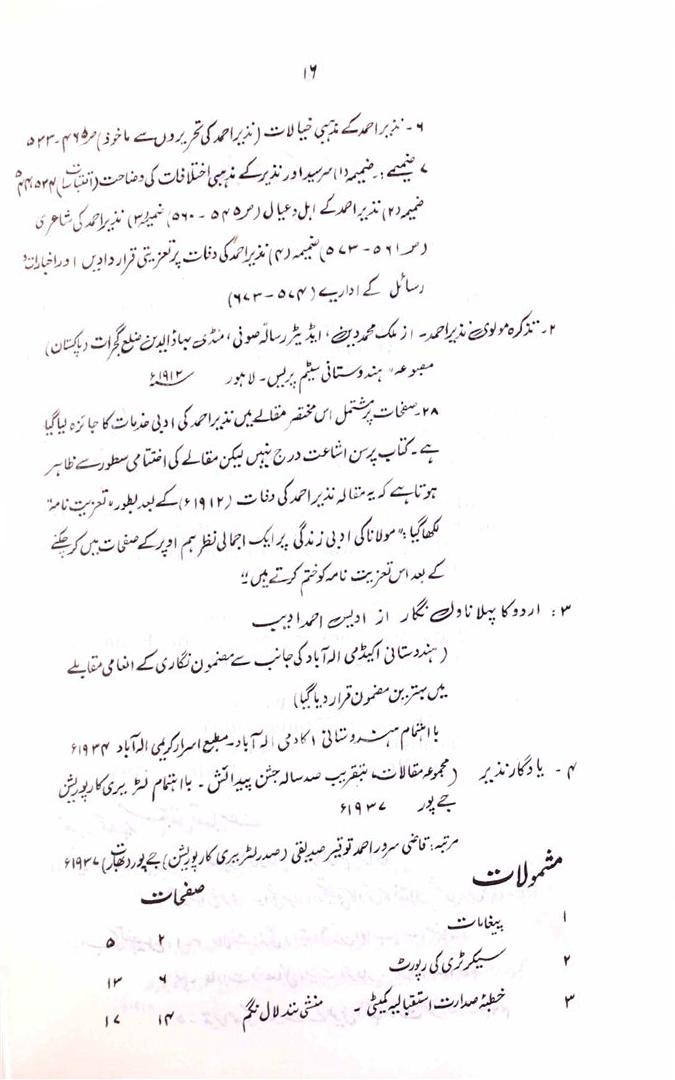 ۱۶
۶ - نذیر احمد کے مذہبی خیالات (نذیر احمد کی تحریروں سے ماخوذ) ص ۴۶۵ - ۵۲۳
۷ ضمیمے :- ضمیمہ (۱) سرسید اور نذیر کے مذہبی اختلافات کی وضاحت (اقتباسات) ۵۲۴ - ۵۴۴
ضمیمہ (۲) نذیر احمد کے اہل و عیال (ص ۵۴۵ - ۵۶۰) ضمیمہ (۳) نذیر احمد کی شاعری
(ص ۵۶۱ - ۵۷۳) ضمیمہ (۴) نذیر احمد کی وفات پر تعزیتی قرار دادیں اور اخبارات و
رسائل کے اداریے (۵۷۴ - ۶۷۳)
۲ - تذکرہ مولوی نذیر احمد - از ملک محمد دین، ایڈیٹر رسالہ صوفی، منڈی بہاؤ الدین ضلع گجرات (پاکستان)
مطبوعہ ہندوستانی سٹیم پریس - لاہور ۱۹۱۲ء
۲۸ - صفحات پر مشتمل اس مختصر مقالے میں نذیر احمد کی ادبی خدمات کا جائزہ لیا گیا
ہے - کتاب پر سن اشاعت درج نہیں لیکن مقالے کی اختتامی سطور سے ظاہر
ہوتا ہے کہ یہ مقالہ نذیر احمد کی وفات (۱۹۱۲ء) کے بعد بطور "تعزیت نامہ"
لکھا گیا : "مولانا کی ادبی زندگی پر ایک اجمالی نظر ہم اوپر کے صفحات میں کر چکنے
کے بعد اس تعزیت نامہ کو ختم کرتے ہیں"
۳ : اردو کا پہلا ناول نگار از اویس احمد ادیب
(ہندوستانی اکیڈمی الہ آباد کی جانب سے مضمون نگاری کے انعامی مقابلے
میں بہترین مضمون قرار دیا گیا)
با اہتمام ہندوستانی اکادمی الہ آباد - مطبع اسرار کریمی الہ آباد ۱۹۳۴ء
۴ - یادگار نذیر (مجموعہ مقالات، بتقریب صد سالہ جشن پیدائش - با اہتمام لٹریری کارپوریشن
جے پور ۱۹۳۷ء
مرتبہ : قاضی سرور احمد توقیر صدیقی (صدر لٹریری کارپوریشن) جے پور (بھارت) ۱۹۳۷ء
مشمولات
صفحات
۱ پیغامات ۲ ۵
۲ سیکرٹری کی رپورٹ ۶ ۱۳
۳ خطبۂ صدارت استقبالیہ کمیٹی - منشی نند لال نگم ۱۴ ۱۷